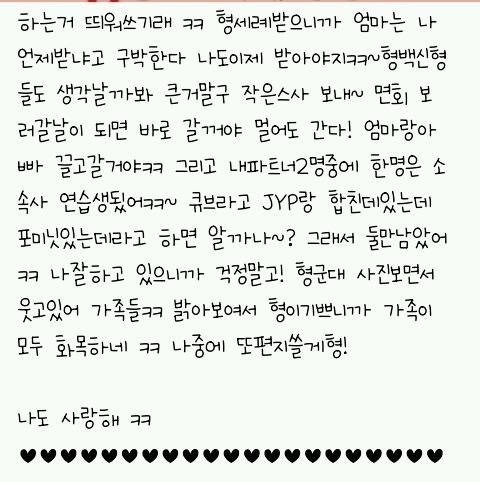 하는거 띄워쓰기래 ㅋㅋ 형세례받으니까 엄마는 나
언제받냐고 구박한다 나도이제 받아야지ㅋㅋ~형백신형
들도 생각날까봐 큰거말구 작은스사 보내~ 면회 보
러갈날이 되면 바로 갈꺼야 멀어도 간다! 엄마랑아
빠 끌고갈거야ㅋㅋ 그리고 내파트너2명중에 한명은 소
속사 연습생됬어ㅋㅋ~ 큐브라고 JYP랑 합친데있는데
포미닛있는데라고 하면 알까나~? 그래서 둘만남았어
ㅋㅋ 나잘하고 있으니까 걱정말고! 형군대 사진보면서
웃고있어 가족들ㅋㅋ 밝아보여서 형이기쁘니까 가족이
모두 화목하네 ㅋㅋ 나중에 또편지쓸게형!
나도 사랑해 ㅋㅋ
♥♥♥♥♥♥♥♥♥♥♥♥♥♥♥♥♥♥♥♥♥